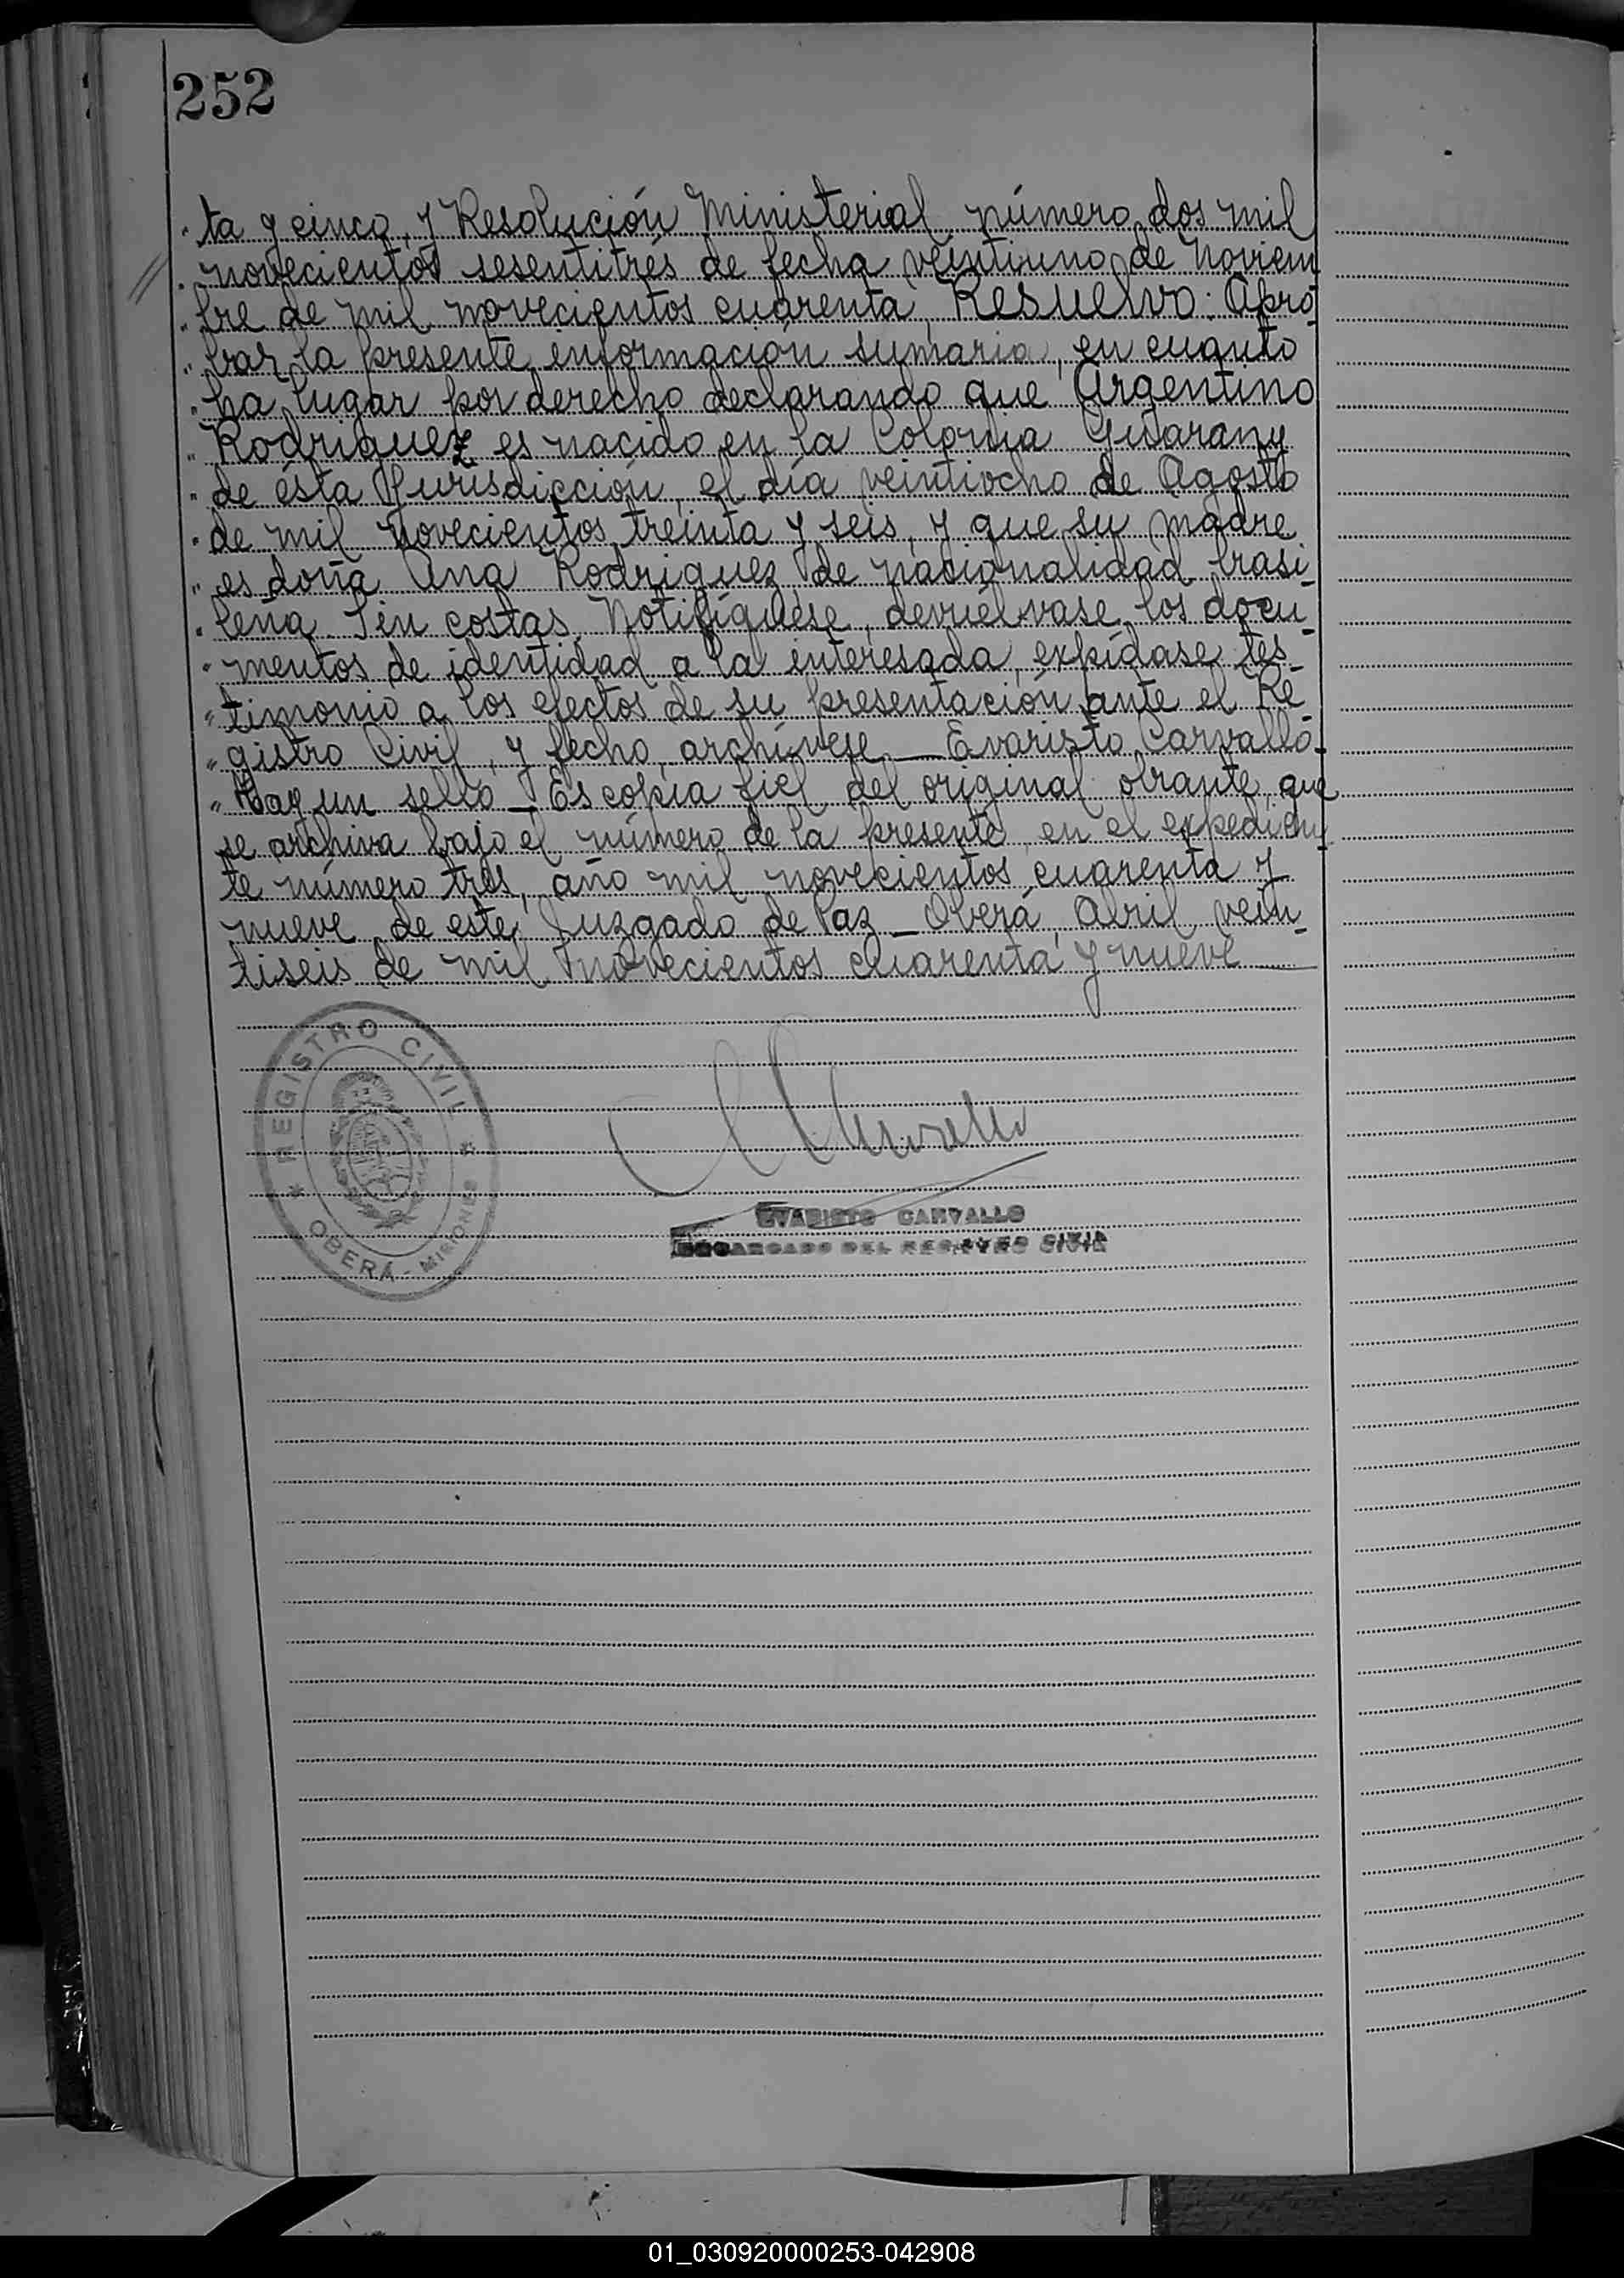 252
" ta y cinco, y Resolución Ministerial número dos mil
" novecientos sesentitrés de fecha veintiuno de Noviem
" bre de mil novecientos cuarenta, Resuelvo: Apro-
" bar la presente información sumaria, en cuanto
" ha lugar por derecho declarando que Argentino
" Rodriguez es nacido en la Colonia Guarany
" de ésta Jurisdicción, el día veintiocho de Agosto
" de mil novecientos treinta y seis, y que su madre
" es doña Ana Rodriguez de nacionalidad brasi-
" leña. Sin costas. Notifíquese, devuélvase los docu-
" mentos de identidad a la interesada, expídase tes-
" timonio a los efectos de su presentación ante el Re-
" gistro Civil, y fecho, archívese_ Evaristo Carvallo-
" Hay un sello_ Es copia fiel del original obrante, que
se archiva bajo el número de la presente, en el expedien-
te número tres, año mil novecientos cuarenta y
nueve de este Juzgado de Paz_ Oberá, Abril vein-
tiseis de mil novecientos cuarenta y nueve
REGISTRO CIVIL
OBERÁ - MISIONES
EVARISTO CARVALLO
ENCARGADO DEL REGISTRO CIVIL
01_030920000253-042908